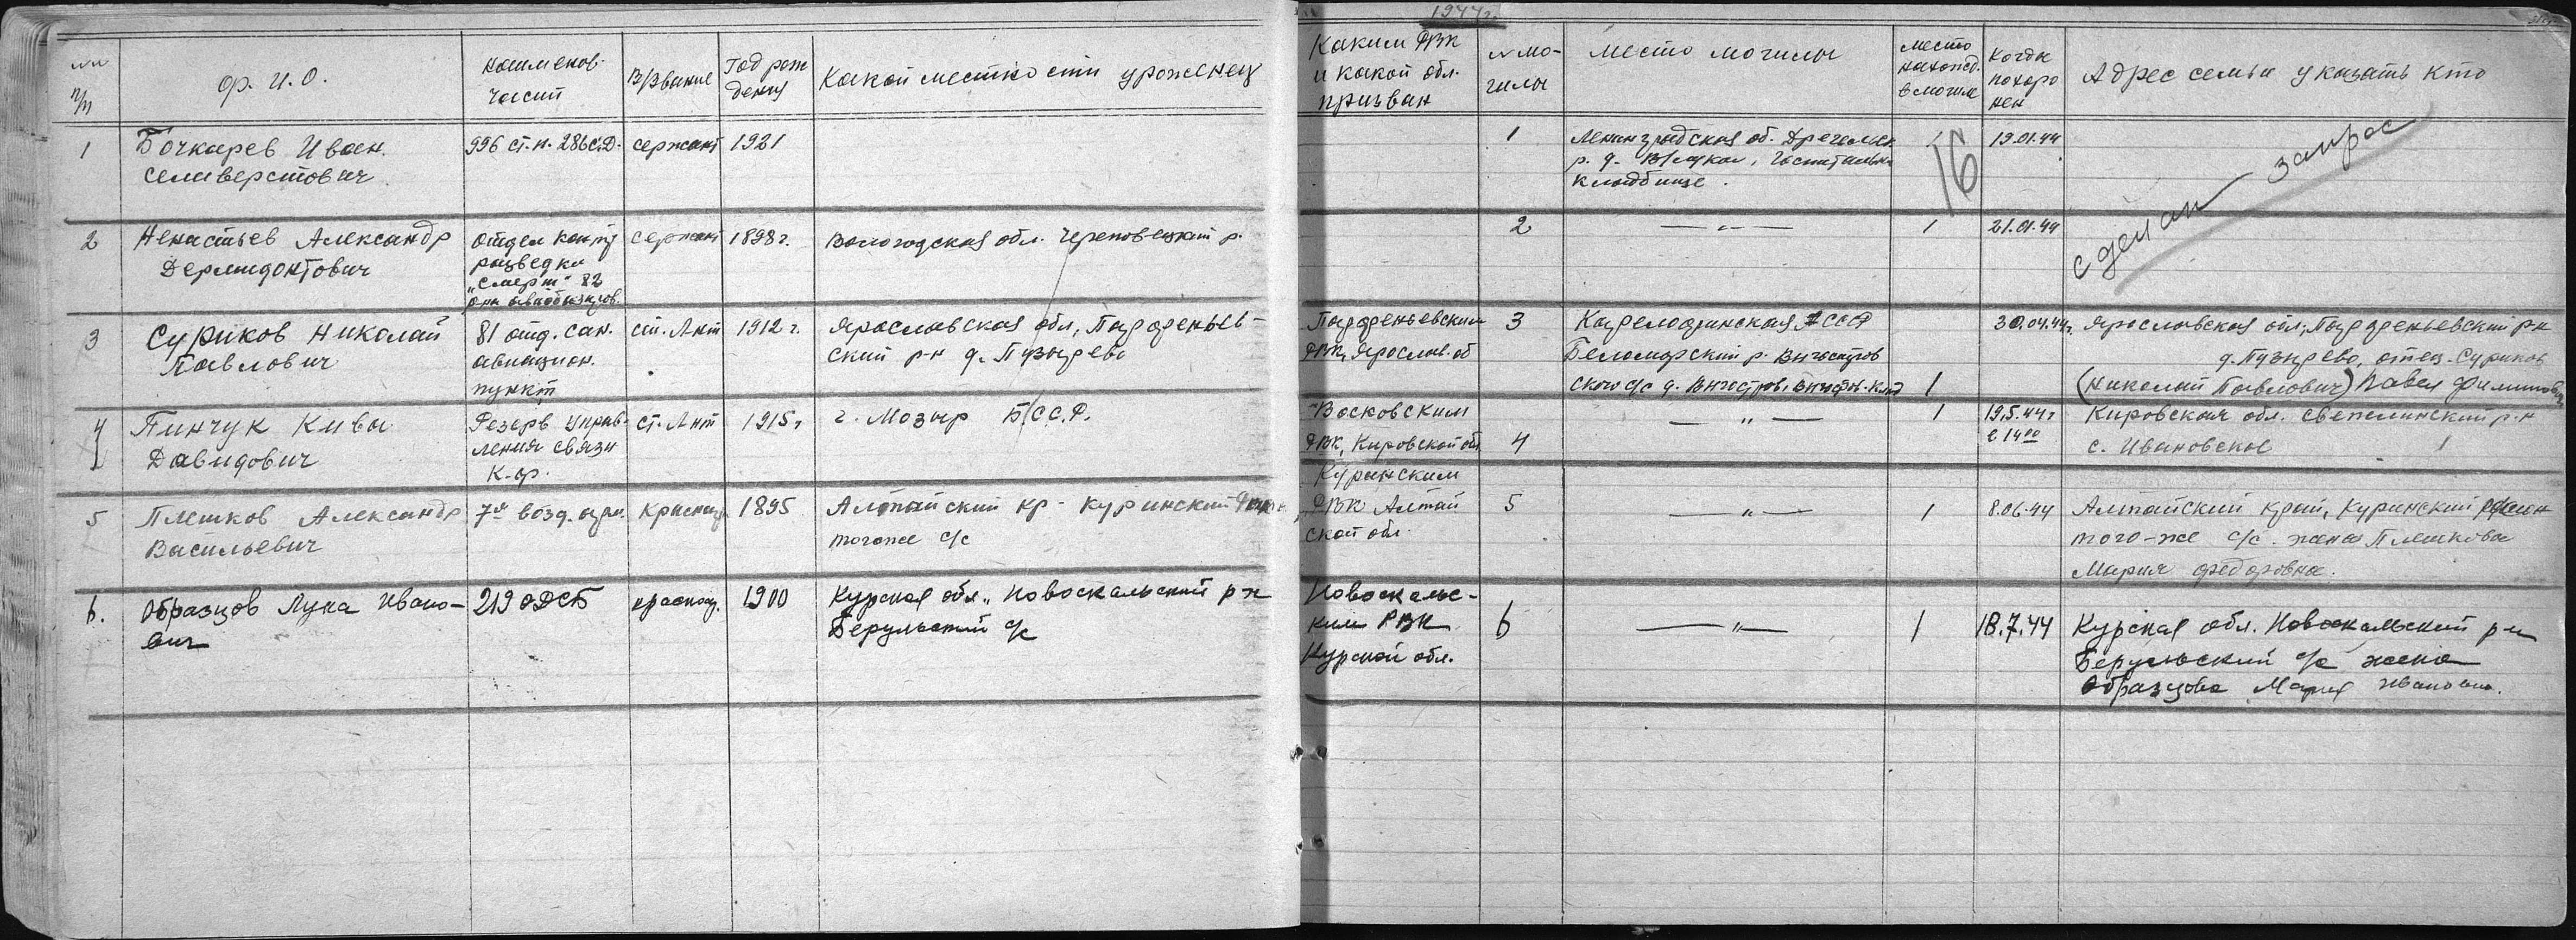 1944 г.
№№ п/п
ф. и. о.
наименов. части
в/звание
Год рождения
Какой местности уроженец
Каким РВК и какой обл. призван
№ могилы
место могилы
место наход. в могиле
Когда похоронен
Адрес семьи указать кто
1
Бочкарев Иван
Селиверстович
996 ст.п. 286 с.Д.
сержант
1921
1
Ленинградская об.
р. д.
кладбище.
16
19.01.44
сделан запрос
2
Ненастьев Александр
Дермидонтович
отдел контр
разведки
„Смерш" 82
сержант
1898 г.
Вологодская обл. Череповецкий р.
2
— " —
1
21.01.44
3
Суриков Николай
Павлович
81 отд. сан.
авиацион.
пункт
ст. Лнт
1912 г.
Ярославская обл, Парфеньев-
ский р-н д. Пузырево
Парфеньевским
РВК, Ярослав. об
3
Карелофинская ССР
Беломорский р. Выгостров
ского с/с д. Выгостров,
1
30.04.44г.
Ярославская обл, Парфеньевский рн
д. Пузырево, отец-Суриков
(Николай Павлович) Павел Филиппович
4
Пинчук Кива
Давидович
Резерв управ-
ления связи
К.ф.
ст. Лнт
1915 г
г. Мозыр БССР.
РВК, Кировской обл
4
— " —
1
19.5.44 г
в 14⁰⁰
Кировская обл. р-н
с. Ивановское
5
Плешков Александр
Васильевич
7я возд. арм.
Красноар
1895
Алтайский кр- Курьинский
тогоже с/с
Курьинским
РВК Алтай
ской обл.
5
— " —
1
8.06.44
Алтайский край, Курьинский район
того-же с/с. жена Плешкова
Мария Федоровна.
6.
Образцов Лука Ивано-
вич
219 ОДСБ
красноар.
1900
Курская обл., Новоскальский р-н
с/с
Новоскальс-
ким РВК
Курской обл.
6
— " —
1
18.7.44
Курская обл. Новоскальский р-н
с/с жена
Образцова Мария Ивановна.